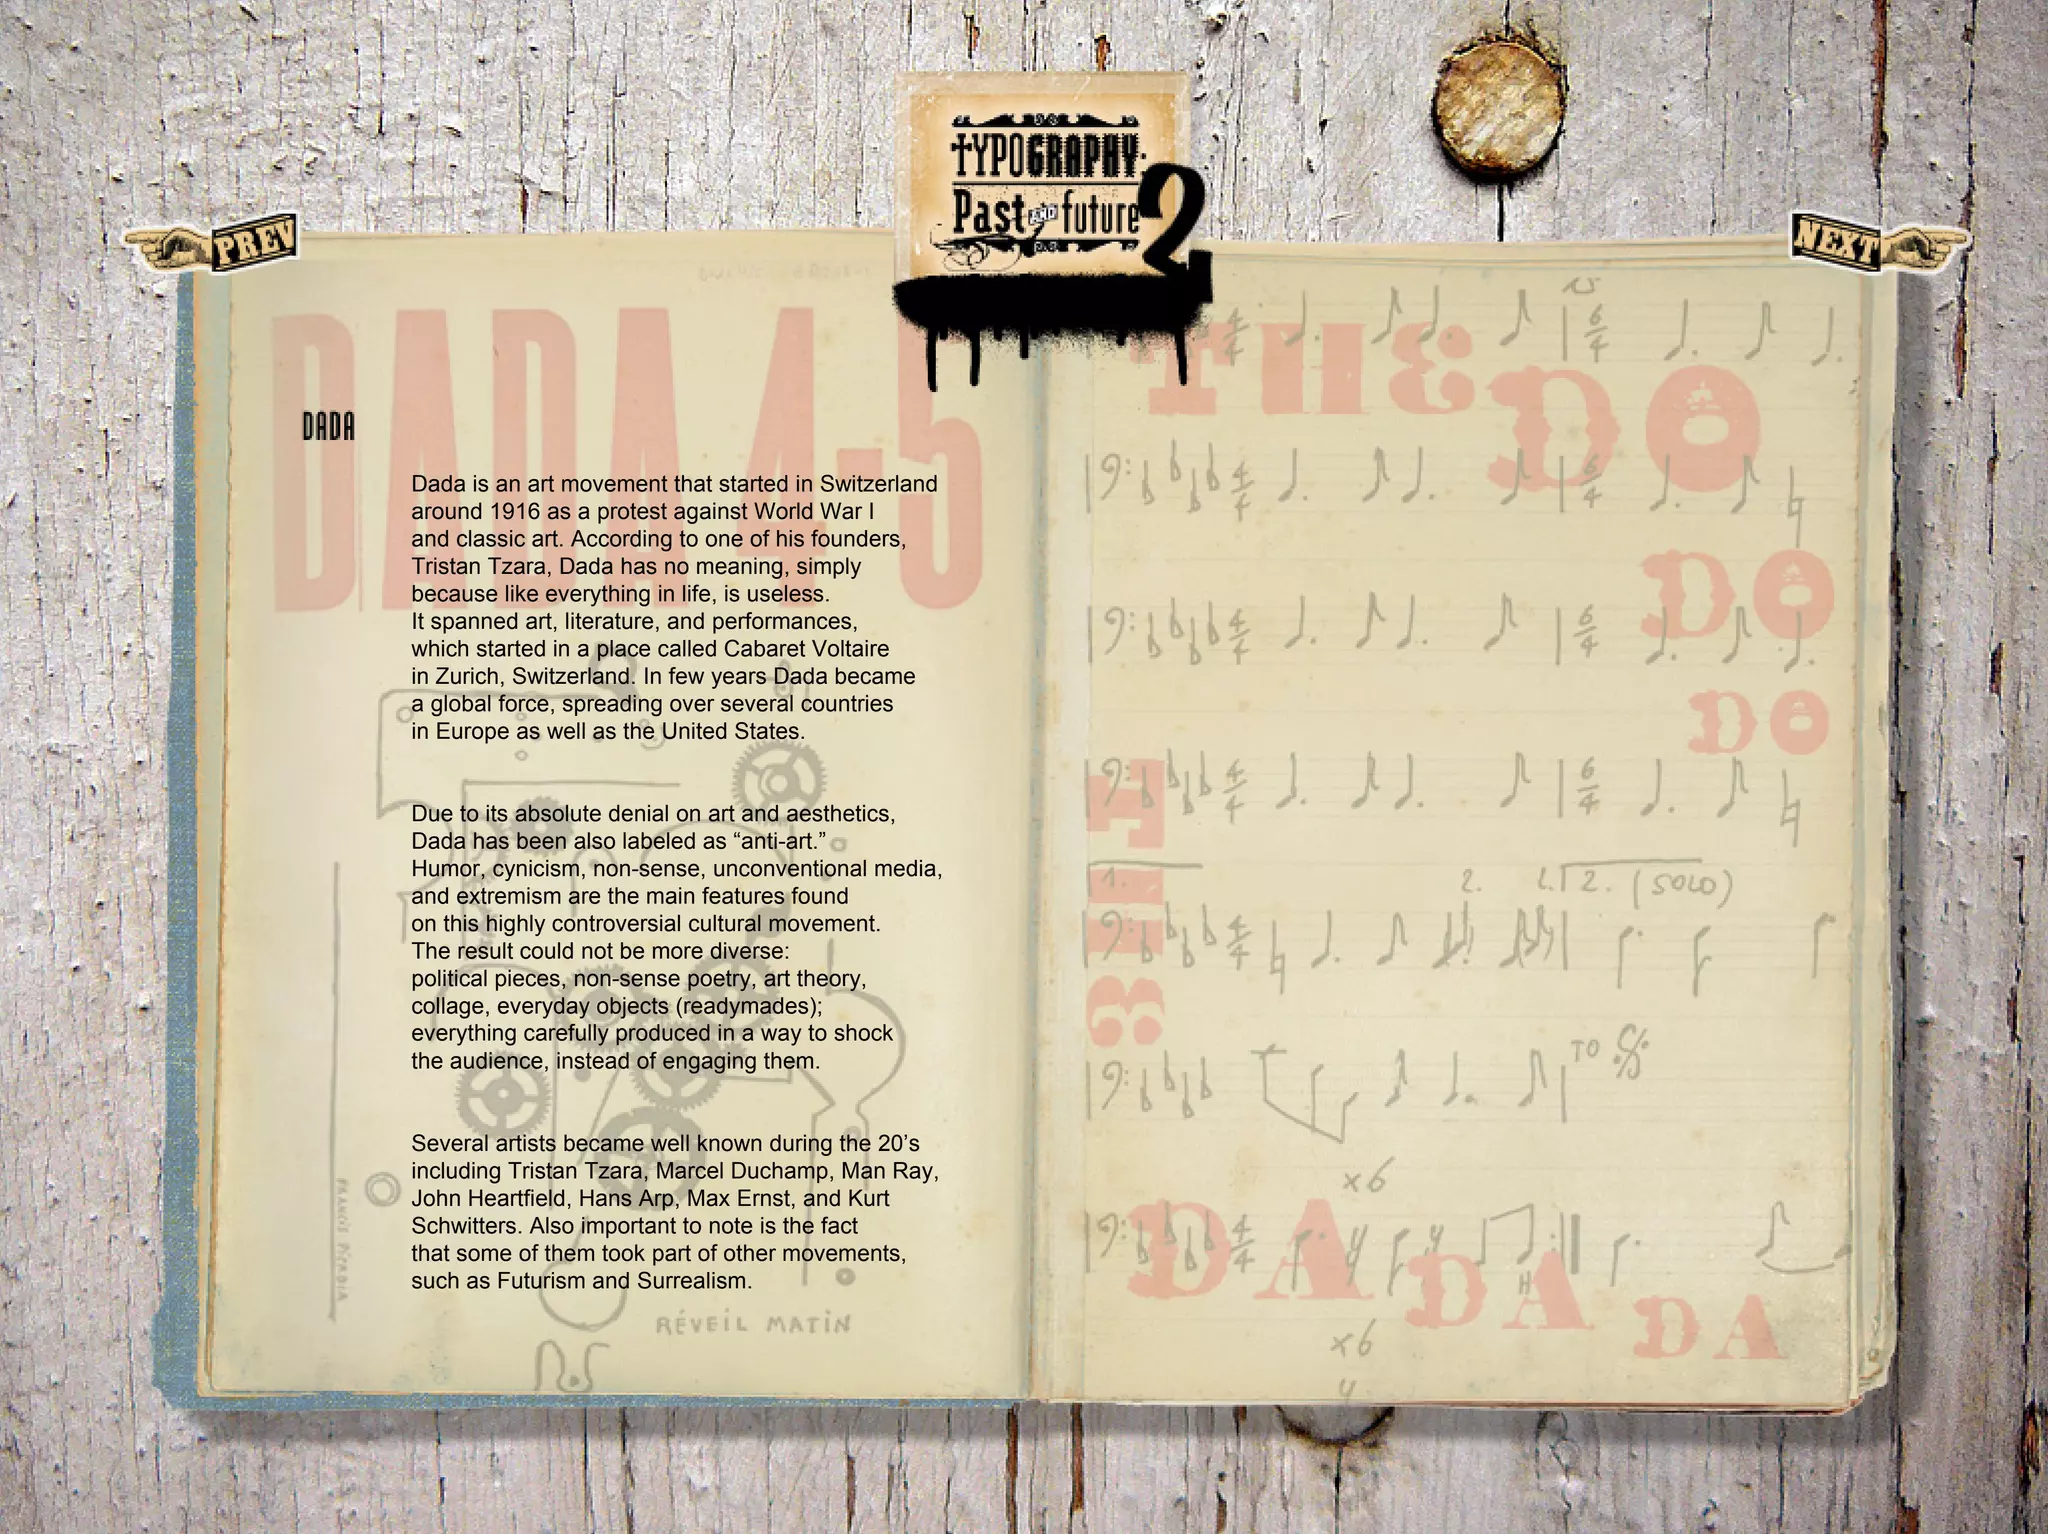 TYPOGRAPHY:
Past AND future 2
PREV
NEXT
DADA 4-5
DADA
Dada is an art movement that started in Switzerland
around 1916 as a protest against World War I
and classic art. According to one of his founders,
Tristan Tzara, Dada has no meaning, simply
because like everything in life, is useless.
It spanned art, literature, and performances,
which started in a place called Cabaret Voltaire
in Zurich, Switzerland. In few years Dada became
a global force, spreading over several countries
in Europe as well as the United States.
Due to its absolute denial on art and aesthetics,
Dada has been also labeled as “anti-art.”
Humor, cynicism, non-sense, unconventional media,
and extremism are the main features found
on this highly controversial cultural movement.
The result could not be more diverse:
political pieces, non-sense poetry, art theory,
collage, everyday objects (readymades);
everything carefully produced in a way to shock
the audience, instead of engaging them.
Several artists became well known during the 20’s
including Tristan Tzara, Marcel Duchamp, Man Ray,
John Heartfield, Hans Arp, Max Ernst, and Kurt
Schwitters. Also important to note is the fact
that some of them took part of other movements,
such as Futurism and Surrealism.
RÉVEIL MATIN
THE DO
DO
DO
THE
1.
2. (SOLO)
TO
x6
DA DA DA
x6